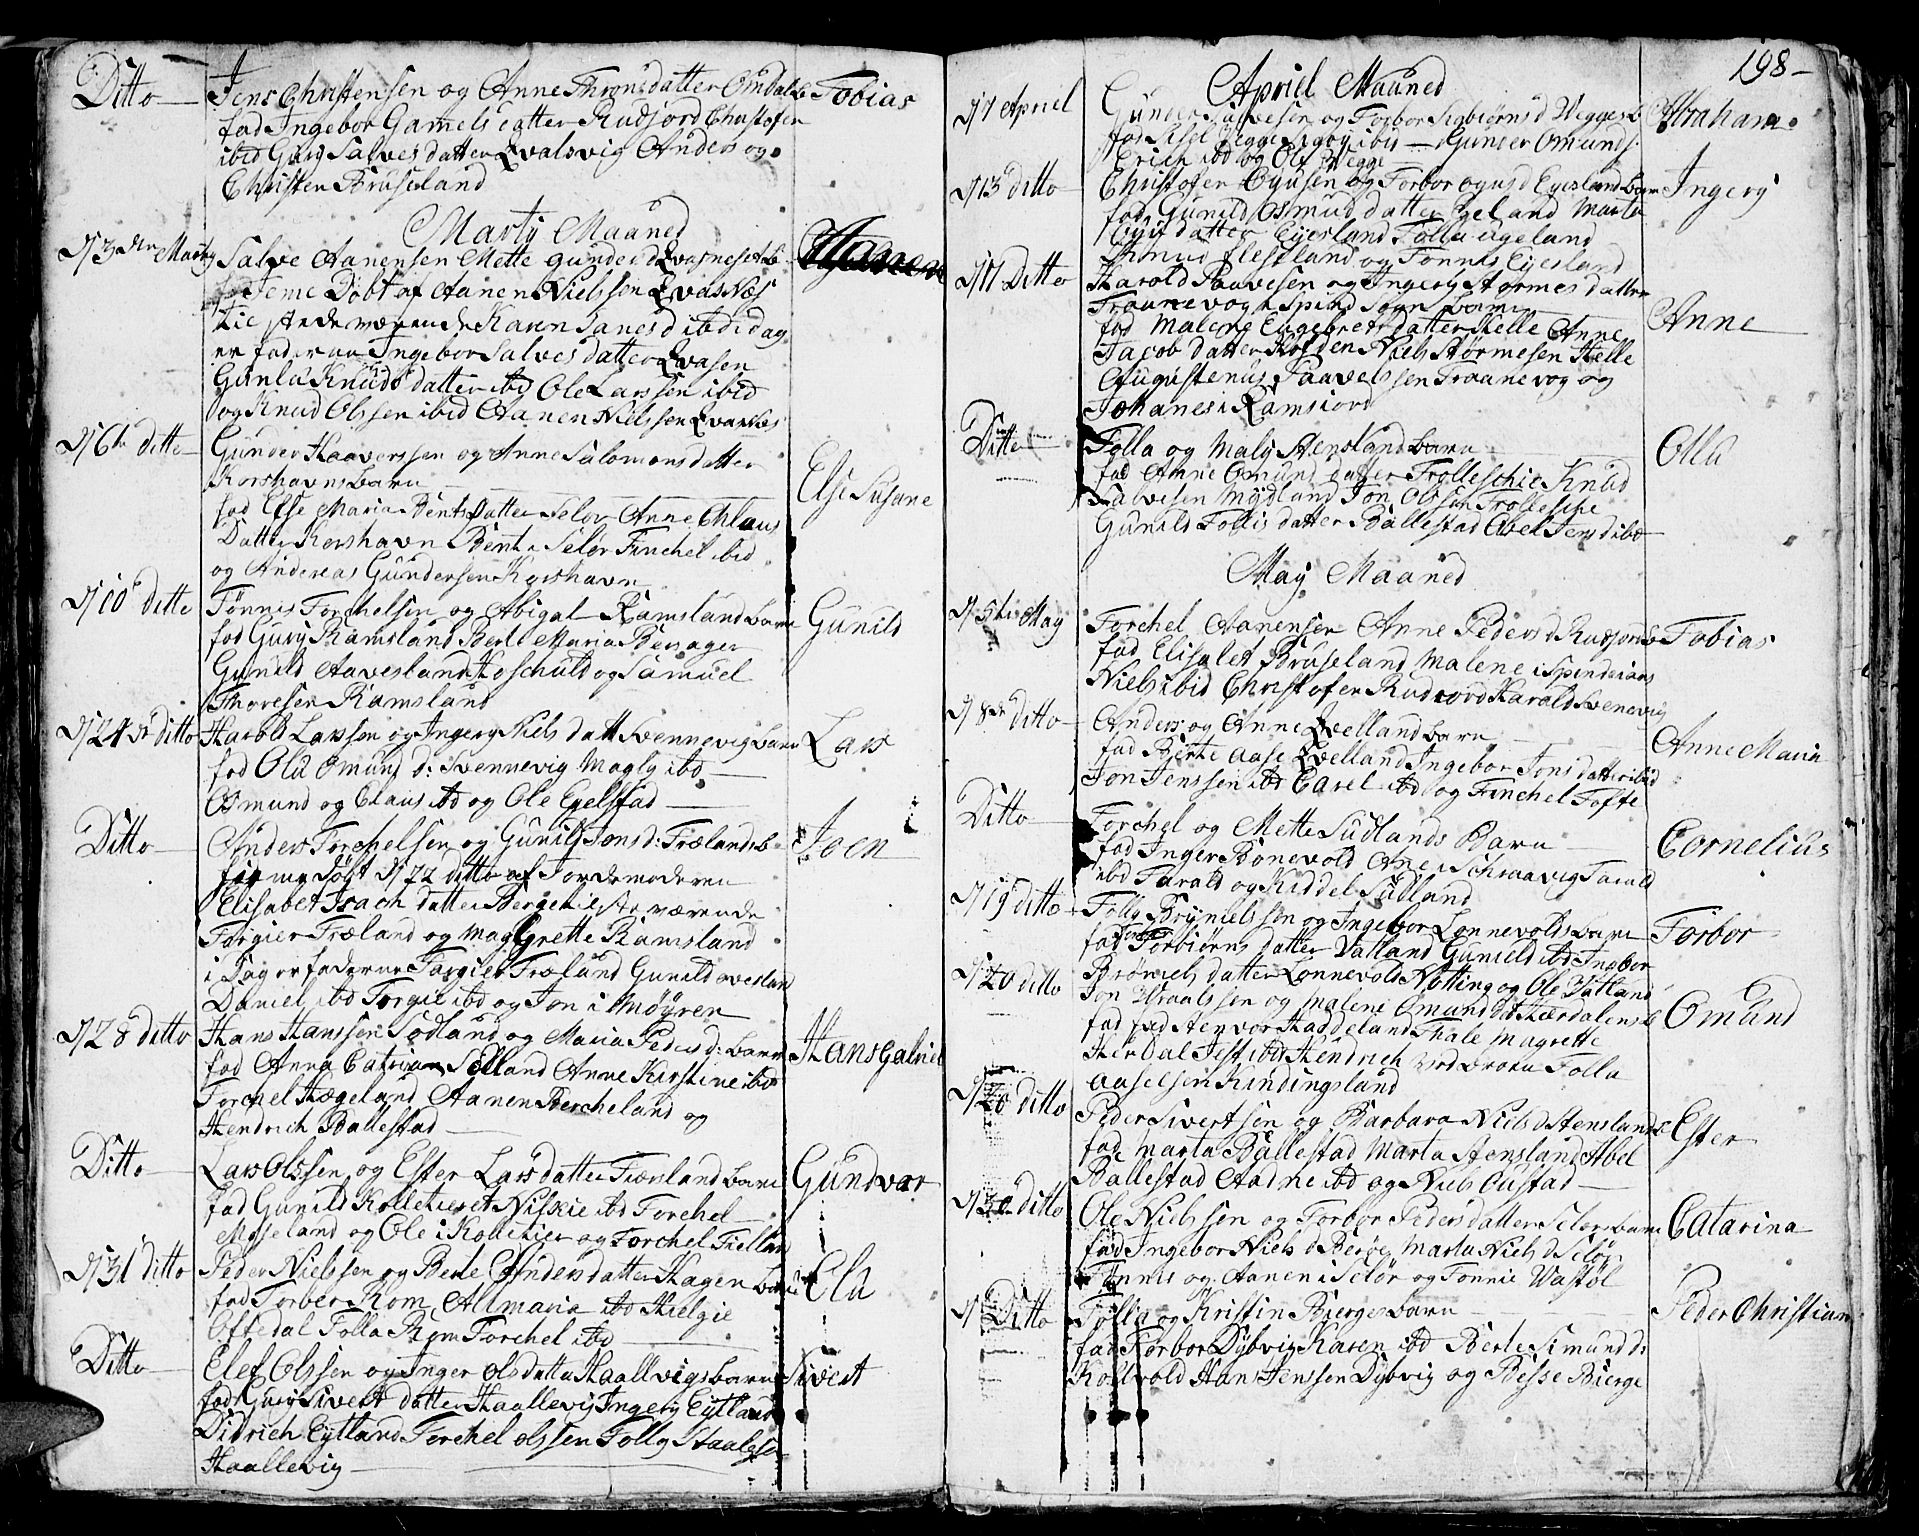 Ditto
Jens Christensen og Anne Thronsdatter Omdals b
Tobias
fad Ingebor Gamelsdatter Rudjord Christofer
ibid Gury Salvesdatter Qvalsvig Anders og
Christen Bruseland
Marty Maaned
Salve Aanensen Mette gunders d
Aanen
hieme Døbt af Aanen Nielssen Qvasnæs
tilstædeværende Karen ibd i dag
er fadrene Ingebor Salvesdatter Qvasen
Gunla Knudsdatter ibd Ole Larssen ibid
og Knud Olssen ibid Aanen Nielssen
d/6te ditto
Gunder Haaverssen og Anne Salomonsdatter
Korshavns barn
Else Susane
fad Else Maria Bentsdatter Selør Anne Chlaus
Datter Korshavn Bent i Selør Finchel ibid
og Andreas Gundersen Korshavn
d/10 ditto
Tønnis Torchelsen og Abigal Ramsland barn
Gunild
fad Gury Ramsland Berte Maria Berrager
Gunild Aavesland Hoschuld og Samuel
Thoresen Ramsland
d/24 ditto
Harold Larssen og Ingery Niels datt Svennevig barn
Lars
fad Ola Omund d: Svennevig Magly ibd
Osmund og Claus ibd og Ole Egelstad
Ditto
Anders Torchelsen og Gunild Jons d: Træland b
Joen
hieme Døbt d/22 ditto af Jordemoderen
Elisabet Isach datter Berge tilstæværende
Torgier Træland og Mag Grette Ramsland
i Dag er faderne Torgier Træland Gunild ovesland
Daniel ibd Torgie ibd og Jon i Møyren
d/28 ditto
Hans Hanssen Sødland og Maria Peders d: barn
Hans Gabriel
fad Anna Catrina Selland Anne Kirstine ibd
Torchel Hægeland Aanen Bercheland og
Hendrich Ballestad
Ditto
Lars Olssen og Ester Larsdatter barn
Gundvor
fad Gunild Kolletieret Niskie ibd Torchel
Moseland og Ole i Kolletier og Torchel Fielland
d/31 ditto
Peder Nielssen og Berte Andersdatter Hagen barn
Ela
fad Torber Rom Allmaria ibd Hielgie
Oftedal Tolla Rom Torchel ibd
Ditto
Elef Olssen og Inger olsdatter Haallvigs barn
Sivert
fad Gury Sivert datter Haallevig Ingery Eytland
Didrich Eytland Torchel olssen Tolly Staalesen
Haallevig
198
Apriel Maaned
d/1 Apriel
Gunder Salvesen og Torbor Sigbiørns d Vegges b
Abraham
fad Sisel Vegge ibid Gunder Omunds
Erich ibd og Ole Vegge
d/13 ditto
Christofer Ogusen og Torbor ogus d Eyesland barn
Ingery
fad Gunild Osmud datter Egeland Marta
datter Eyesland Tolla ugeland
Omud flestland og Tønnis Eyesland
d/17 Ditto
Harold Paavesen og Ingery Størmes datter
Traanevog i Spind Sogn barn
Anne
fad Malene Engebretsdatter Helle Anne
Jacob datter Niels Størmesen Helle
Augustenus Paavelssen Traanevog og
Johanes i Ramsiord
Ditto
Tolla og Maly Stensland barn
Olla
fad Anne Omunds datter Trolleschie Knud
Salvesen Mydland Jon Olssen Trolleschie
Gunild Tollis datter Ballestad Abel Jens d ibd
May Maaned
d/5te May
Torchel Aanensen Anne Peders d Rudjords b
Tobias
fad Elisabet Bruseland Malene i
Niels ibid Christofer Rudiord Harald Svenevig
d/8de ditto
Anders og Anne Qvelland barn
Anne Maria
fad Berte Aase Qvelland Ingebor Jons datter ibid
Jon Jenssen ibd Carel ibd og Finchel Tofte
Ditto
Torchel og Mette Sudlands Barn
Cornelius
fad Inger Bønevold Ane Schraavig Tarald
ibd Tarald og Kiddel Sudland
d/19 ditto
Tolly Brynielssen og Ingebor Lønnevolds barn
Torbor
fad Torbiørns datter Vatland Gunild ibd Ingebor
Brøniels datter Lønnevold Netting og Ole Vatland
d/20 ditto
Jon Uraalssen og Malene Omunds d: Hærdalens b
Omund
fad Haddeland Thale Magrette
Herdal Jest ibd Hendrich Tolla
Aaselsen Kindingsland
d/26 ditto
Peder Sivertsen og Barbara Niels d Stenslands b
Ester
fad Marta Ballestad Marta Stensland Abel
Ballestad Aadne ibd og Niels Oustad
d/30 ditto
Ole Nielssen og Torbor Pedersdatter Selør barn
Catarina
fad Ingebor Niels d Berge Marta Niels d Selør
Tønnis og Aanen i Selør og Tønnie Vastøl
Ditto
Tollag og Kristin Bierges barn
Peder Christian
fad Torbor Dybvig Karen ibd Berte Simund d:
Kollvold Hans Jenssen Dybvig og Besse Bierge